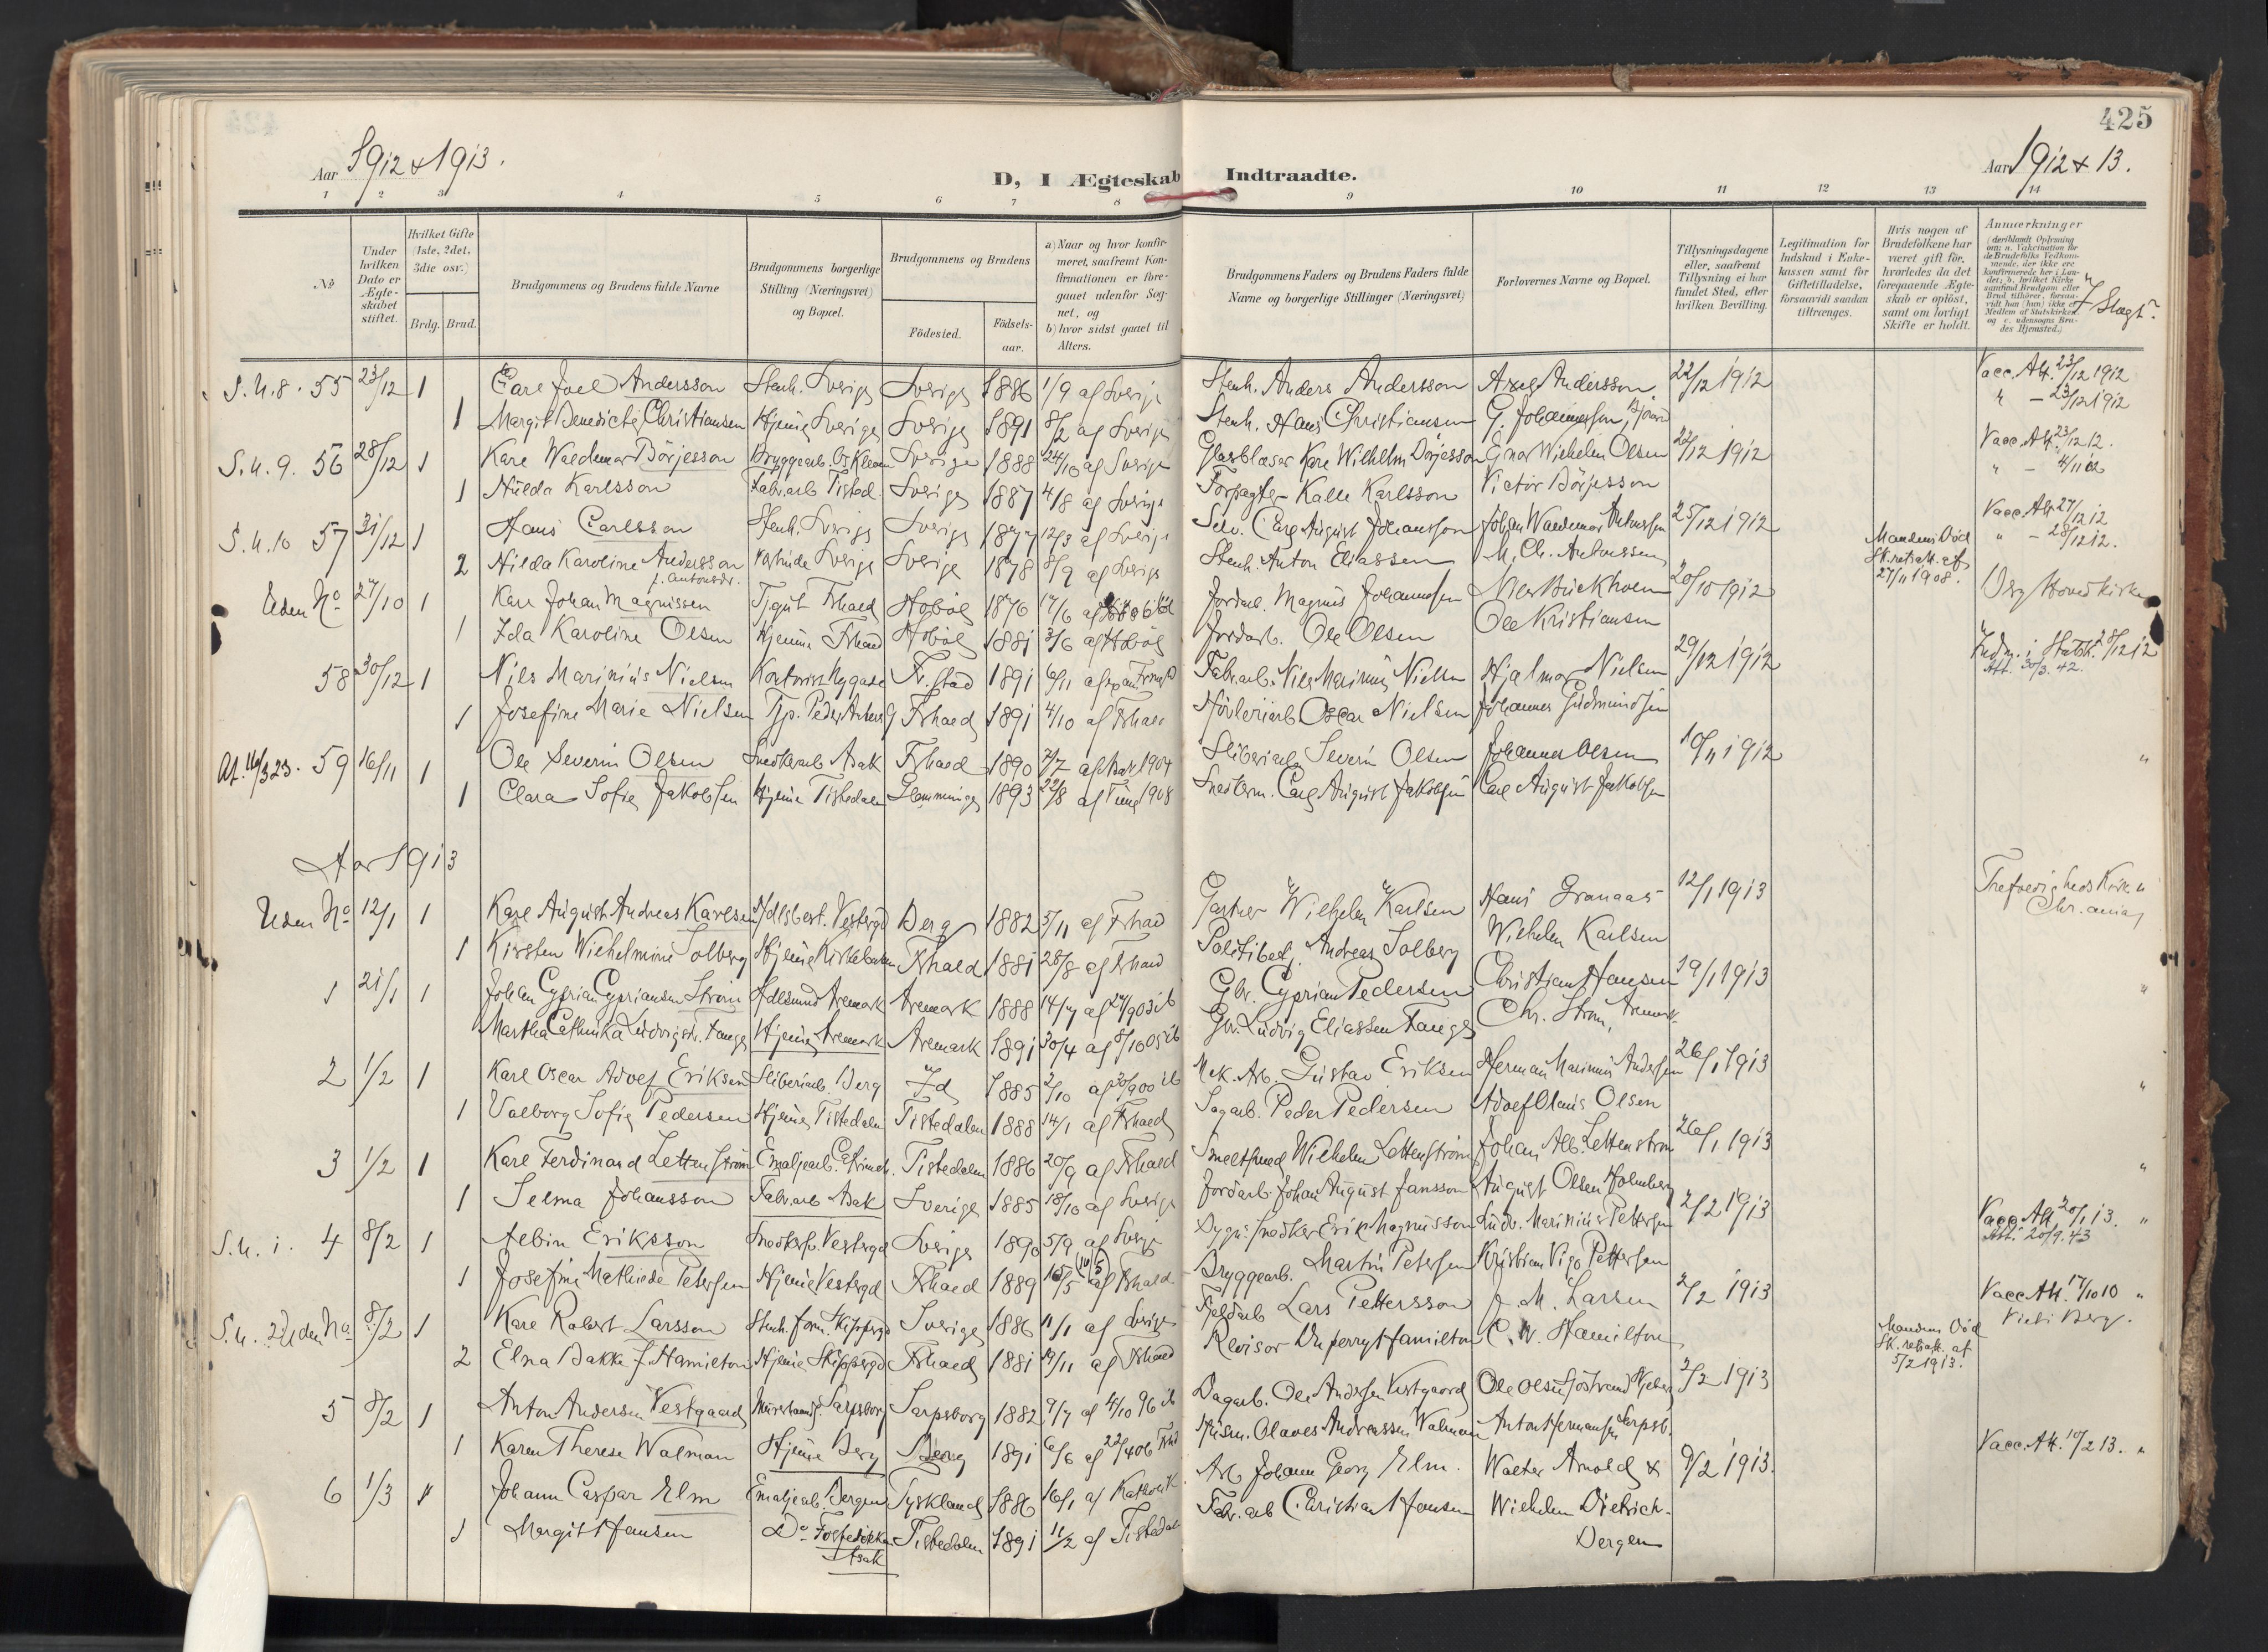 425
Aar 1912 & 1913.
D, I Ægteskab Indtraadte.
Aar 1912 & 13.
1 2 3 4 5 6 7 8 9 10 11 12 13 14
No
Under hvilken Dato er Ægteskabet stiftet.
Hvilket Gifte (1ste, 2det, 3die osv.)
Brdg. Brud.
Brudgommens og Brudens fulde Navne
Brudgommens borgerlige Stilling (Næringsvei) og Bopæl.
Brudgommens og Brudens
Födested.
Födselsaar.
a) Naar og hvor konfirmeret, saafremt Konfirmationen er foregaaet udenfor Sognet, og
b) hvor sidst gaaet til Alters.
Brudgommens Faders og Brudens Faders fulde Navne og borgerlige Stillinger (Næringsvei)
Forlovernes Navne og Bopæl.
Tillysningsdagene eller, saafremt Tillysning ei har fundet Sted, efter hvilken Bevilling.
Legitimation for Indskud i Enkekassen samt for Giftetilladelse, forsaavidt saadan tiltrænges.
Hvis nogen af Brudefolkene har været gift för, hvorledes da det foregaaende Ægteskab er oplöst, samt om lovligt Skifte er holdt.
Anmærkninger
(deriblandt Oplysning om: a. Vakcination for de Brudefolks Vedkommende, der ikke ere konfirmerede her i Landet; b. hvilket Kirkesamfund Brudgom eller Brud tilhörer, forsaavidt han (hun) ikke er Medlem af Statskirken og c. udensogns Brudes Hjemsted.)
Slægt?
S. U. 8. 55 23/12 1 Carl Joel Andersson Stenh. Sverige Sverige 1886 1/9 af Sverige Stenh. Anders Andersson Axel Andersson 22/12 1912 Vacc. Att. 23/12 1912
1 Margit Benedicte Christiansen Hjemme Sverige Sverige 1891 8/2 af Sverige Stenh. Hans Christiansen G. Johannessen, " – 23/12 1912
S. U. 9. 56 28/12 1 Karl Waldemar Börjesson Bryggearb. Sverige 1888 24/10 af Sverige Glasblæser Karl Wilhelm Börjesson Einar Wilhelm Olsen 22/12 1912 Vacc. Att. 23/12 12.
1 Hulda Karlsson Fabr.arb. Tisted. Sverige 1887 4/8 af Sverige Forpagter Kalle Karlsson Victor Börjesson " – 4/11 12
S. U. 10 57 31/12 1 Hans Carlsson Stenh. Sverige Sverige 1877 12/3 af Sverige Selv. Carl August Johansson Johan Waldemar Antonsen 25/12 1912 Vacc. Att. 27/12 12
2 Hilda Karoline Andersson f. Antonsdr. Sverige Sverige 1878 8/9 af Sverige Stenh. Anton Eliassen M. Ch. Antonssen Mandens Död Sk.retsatt. af 27/11 1908. " – 28/12 12.
Uden No 27/10 1 Karl Johan Magnussen Fhald Hobøl 1876 Jordarb. Magnus Johannesen Nils Buckholm 20/10 1912 Berg Hovedkirke
1 Ida Karoline Olsen Hjemme Fhald Hobøl 1881 3/6 af Hobøl Jordarb. Ole Olsen Ole Kristiansen
58 30/12 1 Nils Marinius Nielsen Kontorist Fr.stad 1891 Fabr.arb. Nils Marinus Nielsen Hjalmar Nielsen 29/12 1912 Indm. i Statsk. Att. 30/3. 42.
1 Josefine Marie Nielsen Fhald 1891 4/10 af Fhald Høvleriarb Oscar Nielsen Johannes Gudmundsen
At. 16/3 23. 59 16/11 1 Ole Severin Olsen Snedkerarb Asak Fhald 1890 af Asak 1904 Sliberiarb Severin Olsen Johannes Olsen 10/11 1912 "
1 Clara Sofie Jakobsen Hjemme Tistedalen Glemminge 1893 22/8 af Tune 1908 Snedkerm. Carl August Jakobsen Carl August Jakobsen
Aar 1913
Uden No 12/1 1 Karl August Andreas Karlsen Vestergd Berg 1882 5/11 af Fhald Gartner Wilhelm Karlsen Hans Granaas 12/1 1913 Trefoldigheds Kirke Chr.ania
1 Kirsten Wilhelmine Solberg Hjemme Kirkebakken Fhald 1881 28/8 af Fhald Politibetj. Andreas Solberg Wilhelm Karlsen
1 21/1 1 Johan Cyprian Cypriansen Ström Aremark Aremark 1888 14/7 af 27/9 03 ib Gbr. Cyprian Pedersen Christian Hansen 19/1 1913 "
Martha Cathinka Ludvigsdr. Fange Hjemme Aremark Aremark 1891 30/4 af 8/10 05 ib Gbr. Ludvig Eliassen Fange Chr. Ström, Aremark
2 1/2 1 Karl Oscar Adolf Eriksen Sliberiarb. Berg Id 1885 2/10 af 30/9 00 ib Mek. Arb. Gustav Eriksen Herman Marinius Andersen 26/1 1913 "
1 Valborg Sofie Pedersen Hjemme Tistedalen Tistedalen 1888 14/1 af Fhald Sagarb. Peder Pedersen Adolf Olaus Olsen
3 1/2 1 Karl Ferdinand Lettenström Emaljearb. Catrineh. Tistedalen 1886 20/9 af Fhald Smeltsmed Wilhelm Lettenström Johan Alb. Lettenström 26/1 1913 "
1 Selma Johansson Fabr.arb Asak Sverige 1885 18/10 af Sverige Jordarb. Johan August Jansson August Olsen Holmberg
S. U. 1. 4 8/2 1 Albin Eriksson Snedkersv. Vestergd Sverige 1890 5/9 af Sverige Bygn. snedker Erik Magnusson Ludv. Marinius Pettersen 2/2 1913 Vacc. Att. 20/1 13. " Att. 20/9. 43
1 Josefine Mathilde Petersen Hjemme Vestergd Fhald 1889 af Fhald Bryggearb. Martin Petersen Kristian Vigo Pettersen
S. U. 2 Uden No 8/2 1 Karl Robert Larsson Stenh. form. Skippergd Sverige 1886 11/1 af Sverige Fjeldarb Lars Pettersson J. M. Larsen 2/2 1913 Vacc. Att. 17/10 10 " Viet i Berg.
2 Elna Bakke f. Hamilton Hjemme Skippergd Fhald 1881 19/11 af Fhald Revisor Hamilton C. W. Hamilton Mandens Död Sk. retsatt. af 5/2 1913.
5 8/2 1 Anton Andersen Vestgaard Murerhaandl. Sarpsborg Sarpsborg 1882 9/7 af 4/10 96 ib Dagarb. Ole Andersen Vestgaard Ole Olsen Sjöstrand 2/2 1913
1 Karen Therese Walman Hjemme Berg Berg 1891 6/6 af 22/4 06 Husm. Olaves Andreassen Walman Anton Hermansen Sarpsb.
6 1/3 1 Johann Caspar Elm Emaljearb. Bergen Tyskland 1886 16/1 af Katholik Arb. Johann Georg Elm. Walter Arnold & 9/2 1913. Vacc. Att. 10/2 13. "
1 Margit Hansen Do Fossedökken Asak Tistedalen 1891 11/2 af Tistedal Fabr. arb Christian Hansen Wilhelm Dietrich.
Bergen